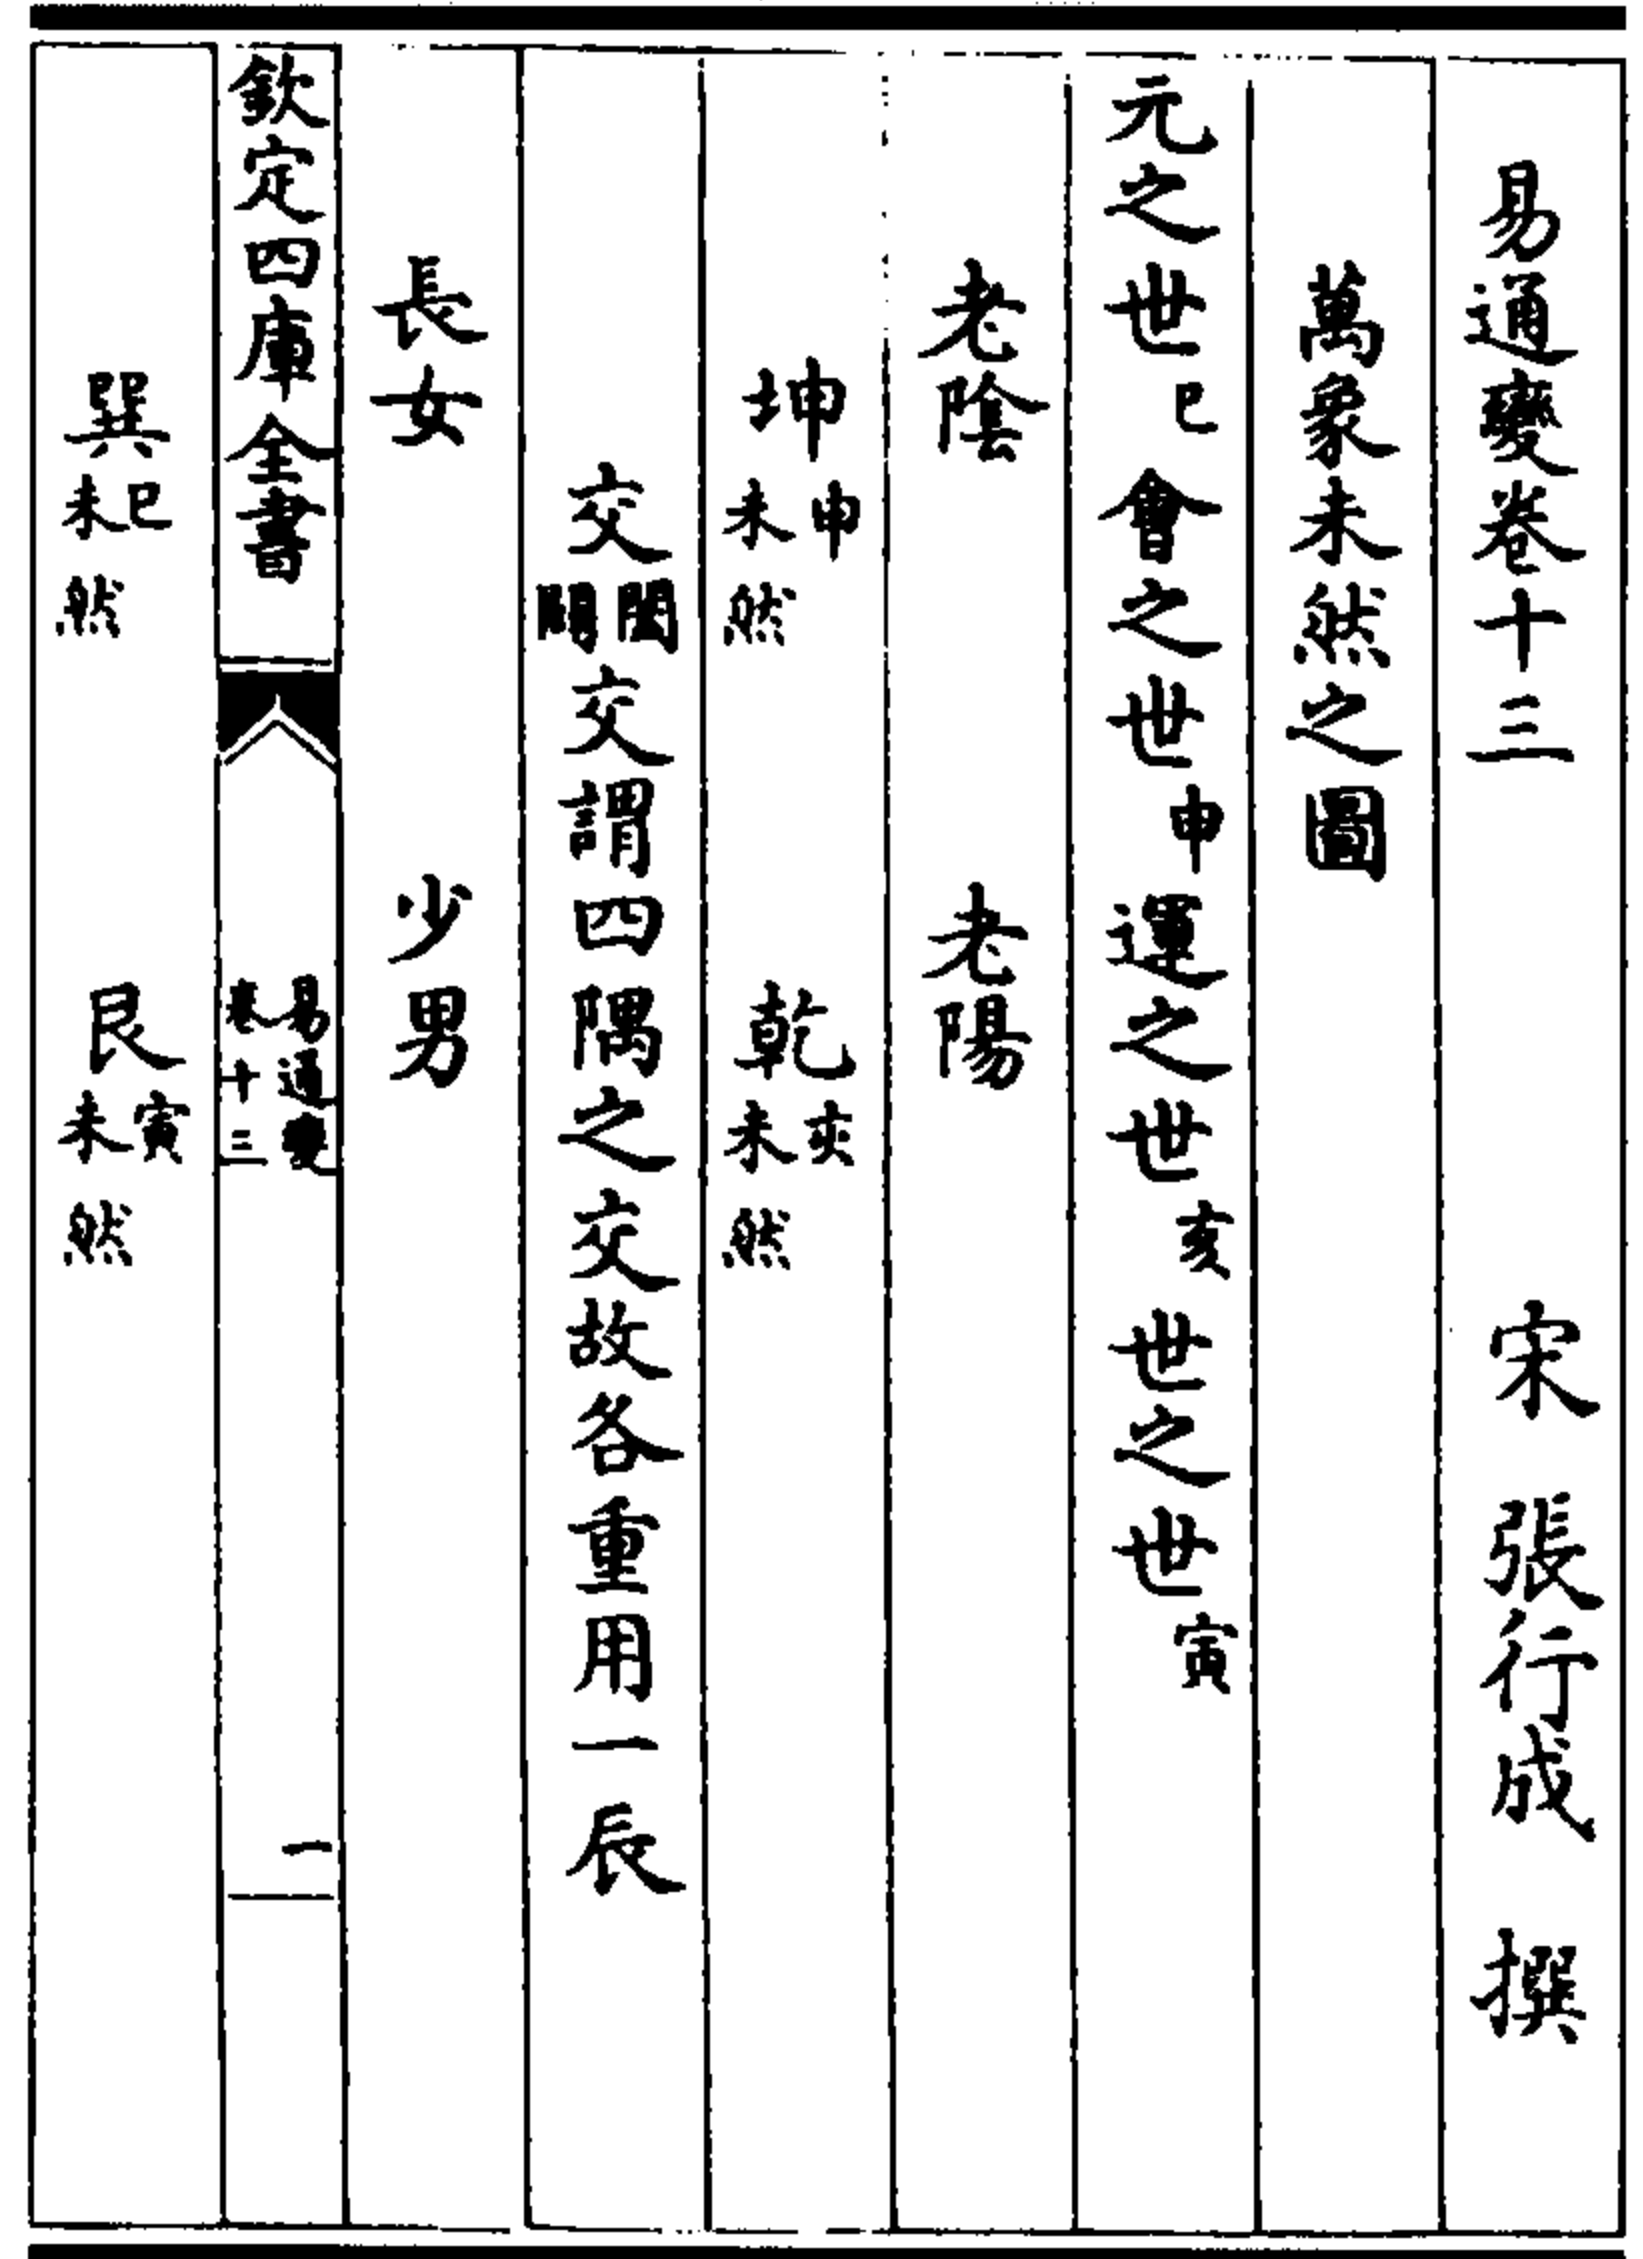 易通變卷十三 宋 張行成 撰
萬象未然之圖
元之世巳會之世申運之世亥世之世寅
老陰 老陽
坤申未然 乾亥未然
交闔闢交謂四隅之交故各重用一辰
長女 少男
欽定四庫全書 易通變 卷十三 一
巽巳未然 艮寅未然